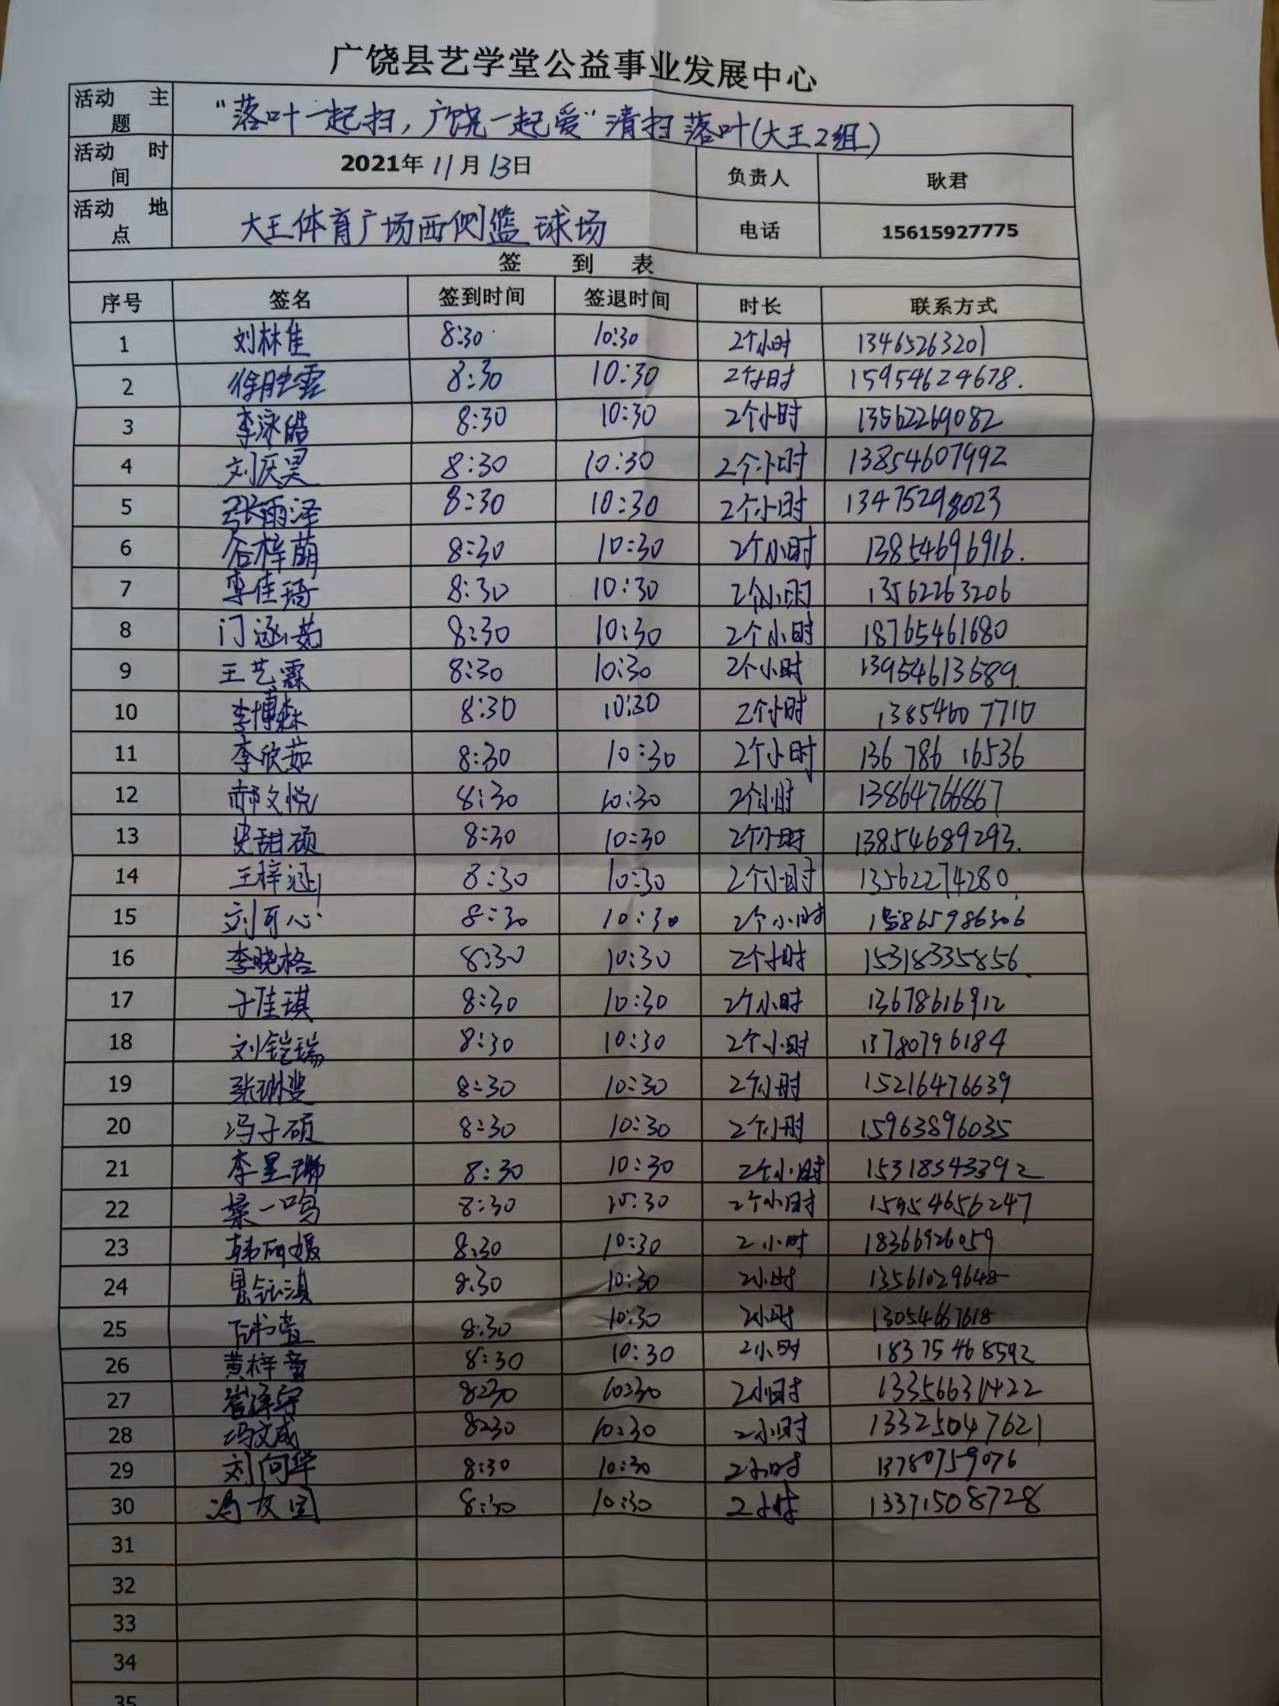 广饶县艺学堂公益事业发展中心
活动 主题 “落叶一起扫，广饶一起爱”清扫落叶(大王2组)
活动 时间 2021年11月13日 负责人 耿君
活动 地点 大王体育广场西侧篮球场 电话 15615927775
签 到 表
序号 签名 签到时间 签退时间 时长 联系方式
1 刘林佳 8:30 10:30 2个小时 13465263201
2 徐胜雲 8:30 10:30 2个小时 15954624678.
3 李泳皓 8:30 10:30 2个小时 13562269082
4 刘庆昊 8:30 10:30 2个小时 13854607992
5 张雨泽 8:30 10:30 2个小时 13475298023
6 谷梓萌 8:30 10:30 2个小时 13854696916.
7 李佳琦 8:30 10:30 2个小时 13562263206
8 门涵茹 8:30 10:30 2个小时 18765461680
9 王艺霖 8:30 10:30 2个小时 13954613589.
10 李博森 8:30 10:30 2个小时 13854607710
11 李欣茹 8:30 10:30 2个小时 136 786 16536
12 郝文悦 8:30 10:30 2个小时 13864766867
13 史甜硕 8:30 10:30 2个小时 13854689293.
14 王梓涵 8:30 10:30 2个小时 13562274280
15 刘可心 8:30 10:30 2个小时 15865986306
16 李晓格 8:30 10:30 2个小时 15318335856
17 于佳琪 8:30 10:30 2个小时 13678616912
18 刘铠瑞 8:30 10:30 2个小时 13780796184
19 张琳斐 8:30 10:30 2个小时 15216476639
20 冯子硕 8:30 10:30 2个小时 15963896035
21 李昱瑞 8:30 10:30 2个小时 15318543392
22 桑一鸣 8:30 10:30 2个小时 15954656247
23 韩雨媛 8:30 10:30 2小时 18366926059
24 8:30 10:30 2小时 13561029648
25 8:30 10:30 2小时 13054667618
26 黄梓童 8:30 10:30 2小时 18375468592
27 崔泽宇 8:30 10:30 2小时 13356631422
28 冯文成 8:30 10:30 2小时 13325047621
29 刘向华 8:30 10:30 2小时 13780759076
30 冯友国 8:30 10:30 2小时 13371508728
31
32
33
34
35